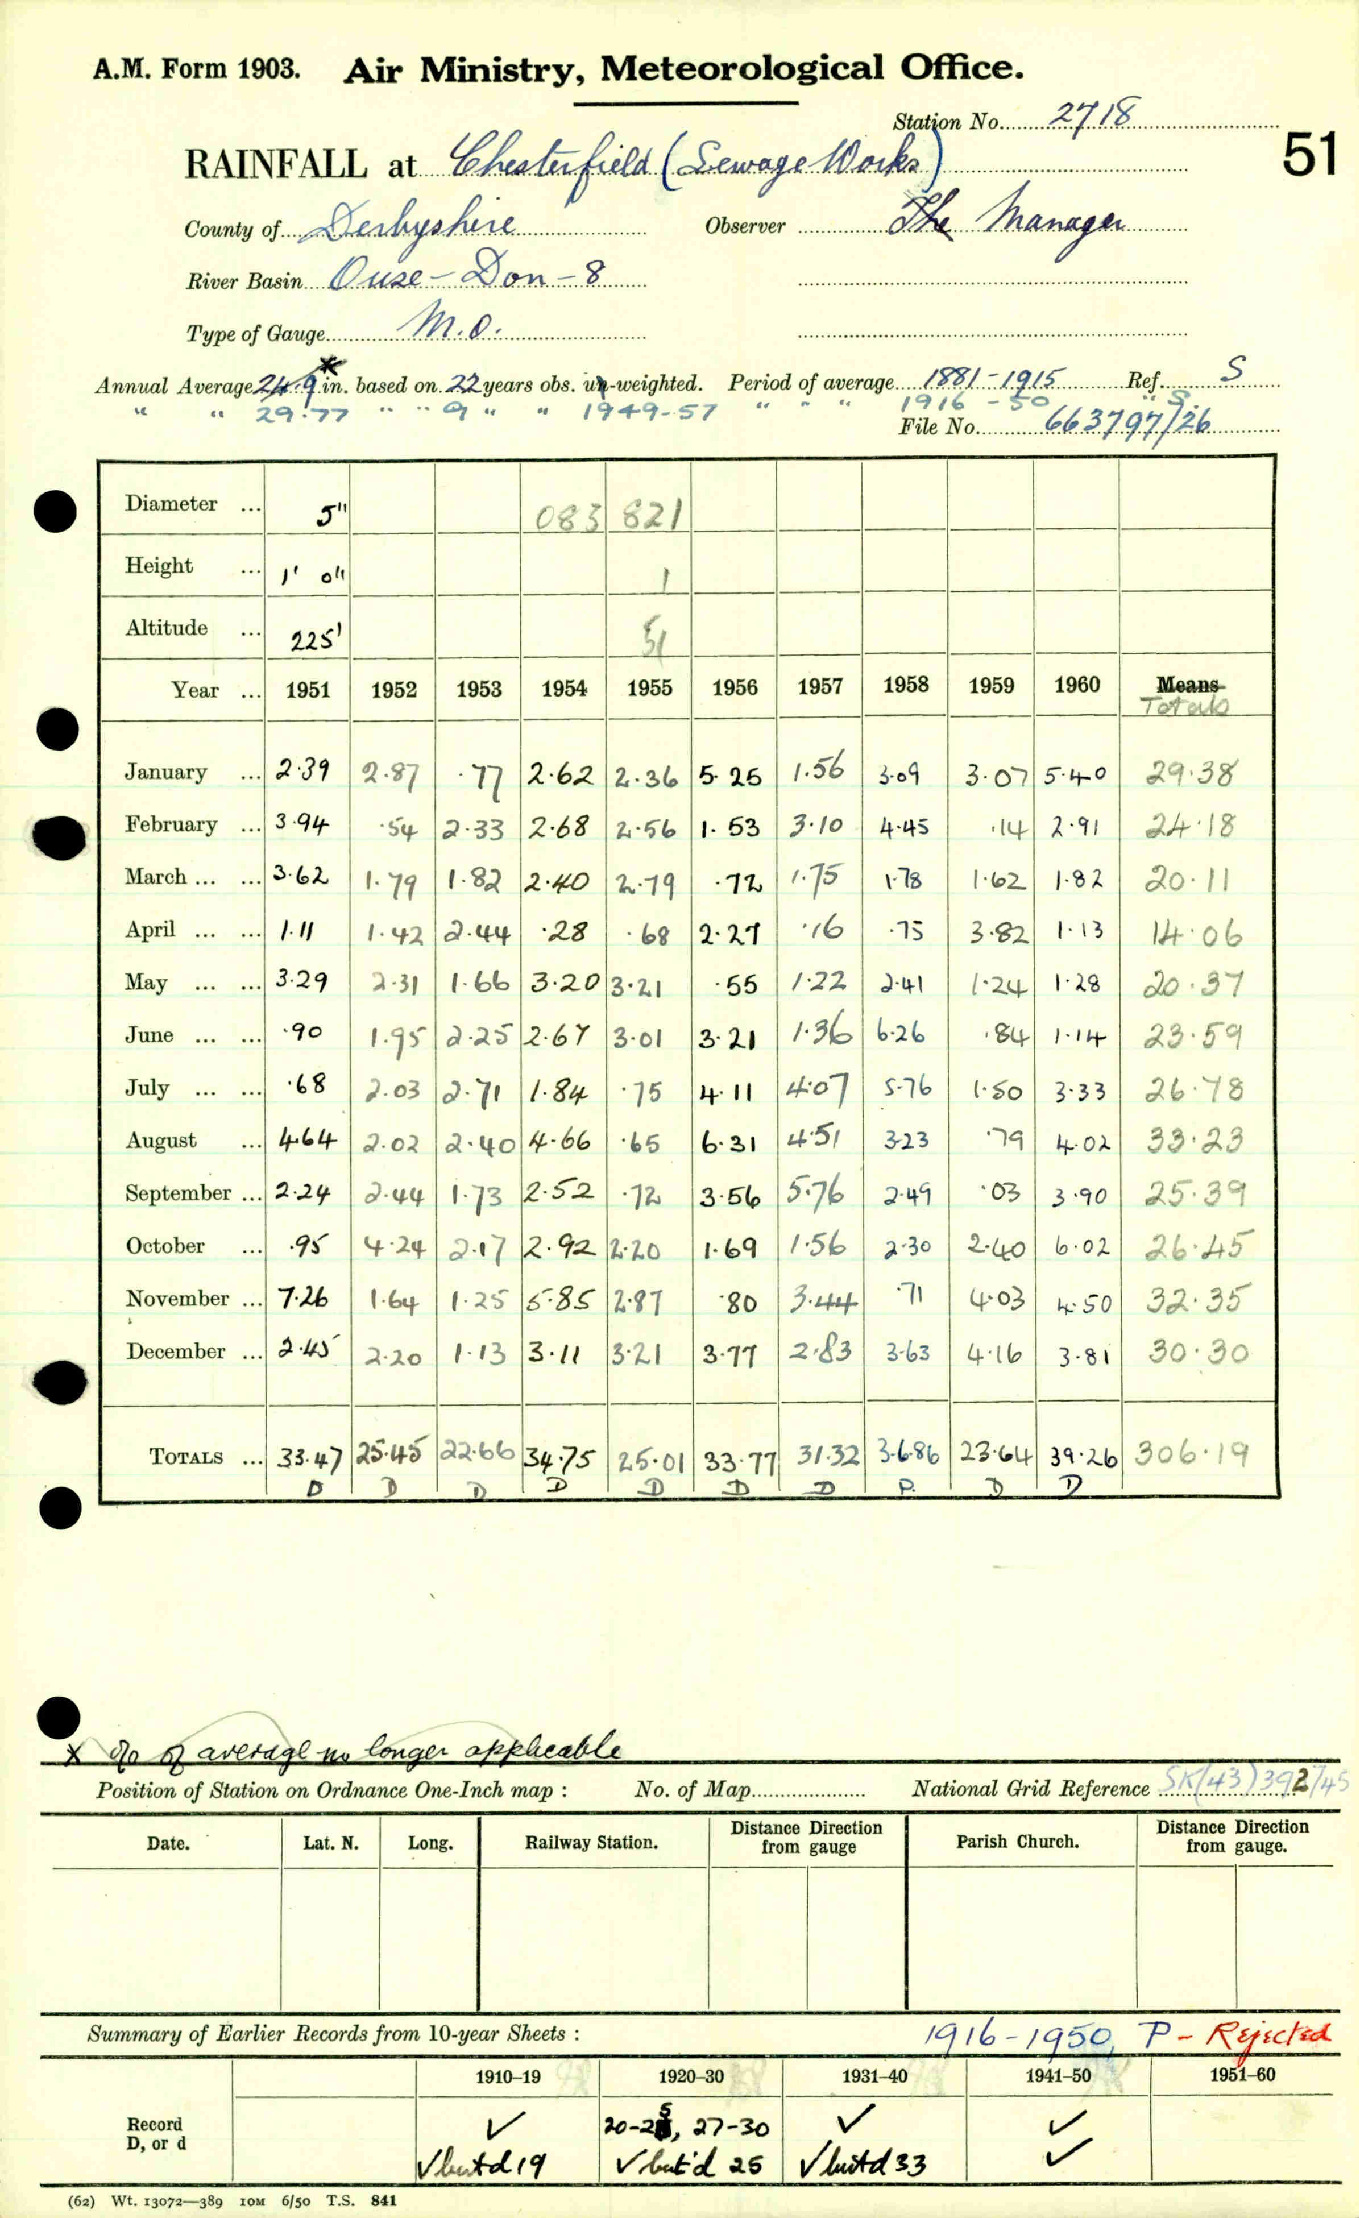 A.M. Form 1903. Air Ministry, Meteorological Office.
Station No. 2718
51
RAINFALL at Chesterfield (Sewage Works)
County of Derbyshire Observer The Manager
River Basin Ouse - Don - 8
Type of Gauge M.O.
Annual Average 24.9* in. based on 22 years obs. un-weighted. Period of average 1881-1915 Ref. S
" " 29.77 " " 9 " " 1949-57 " " " 1916-50 " S.
File No. 663797/26
Diameter ... 5" 083 821
Height ... 1' 0" 1
Altitude ... 225' 51
Year ... 1951 1952 1953 1954 1955 1956 1957 1958 1959 1960 Means
Totals
January ... 2.39 2.87 .77 2.62 2.36 5.25 1.56 3.09 3.07 5.40 29.38
February ... 3.94 .54 2.33 2.68 2.56 1.53 3.10 4.45 .14 2.91 24.18
March ... ... 3.62 1.79 1.82 2.40 2.79 .72 1.75 1.78 1.62 1.82 20.11
April ... ... 1.11 1.42 2.44 .28 .68 2.27 .16 .75 3.82 1.13 14.06
May ... ... 3.29 2.31 1.66 3.20 3.21 .55 1.22 2.41 1.24 1.28 20.37
June ... ... .90 1.95 2.25 2.67 3.01 3.21 1.36 6.26 .84 1.14 23.59
July ... ... .68 2.03 2.71 1.84 .75 4.11 4.07 5.76 1.50 3.33 26.78
August ... 4.64 2.02 2.40 4.66 .65 6.31 4.51 3.23 .79 4.02 33.23
September ... 2.24 2.44 1.73 2.52 .72 3.56 5.76 2.49 .03 3.90 25.39
October ... .95 4.24 2.17 2.92 2.20 1.69 1.56 2.30 2.40 6.02 26.45
November ... 7.26 1.64 1.25 5.85 2.87 .80 3.44 .71 4.03 4.50 32.35
December ... 2.45 2.20 1.13 3.11 3.21 3.77 2.83 3.63 4.16 3.81 30.30
Totals ... 33.47 25.45 22.66 34.75 25.01 33.77 31.32 36.86 23.64 39.26 306.19
D D D D D D D P. D D
x % of average no longer applicable
Position of Station on Ordnance One-Inch map : No. of Map National Grid Reference SK(43)392745
Date. Lat. N. Long. Railway Station. Distance Direction from gauge Parish Church. Distance Direction from gauge.
Summary of Earlier Records from 10-year Sheets : 1916-1950, P - Rejected
1910–19 1920–30 1931–40 1941–50 1951–60
Record ✓ 20-25, 27-30 ✓ ✓
D, or d ✓ but d 19 ✓ but d 25 ✓ but d 33 ✓
(62) Wt. 13072—389 10M 6/50 T.S. 841